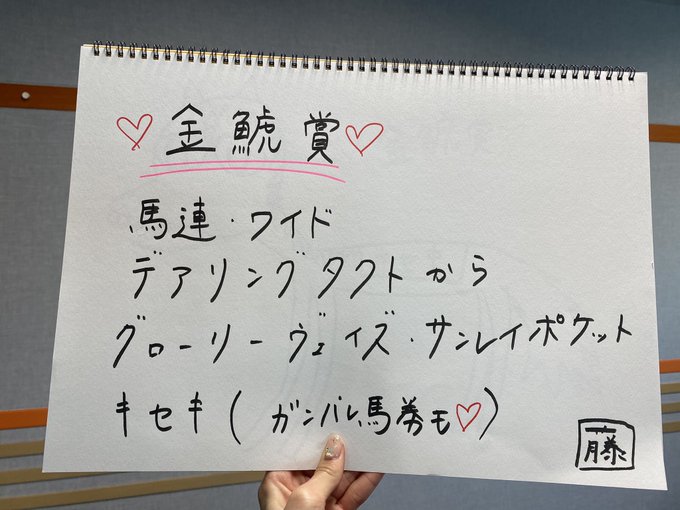 ♡金鯱賞♡
馬連・ワイド
デアリングタクトから
グローリーヴェイズ・サンレイポケット
キセキ(ガンバレ馬券も♡)
藤